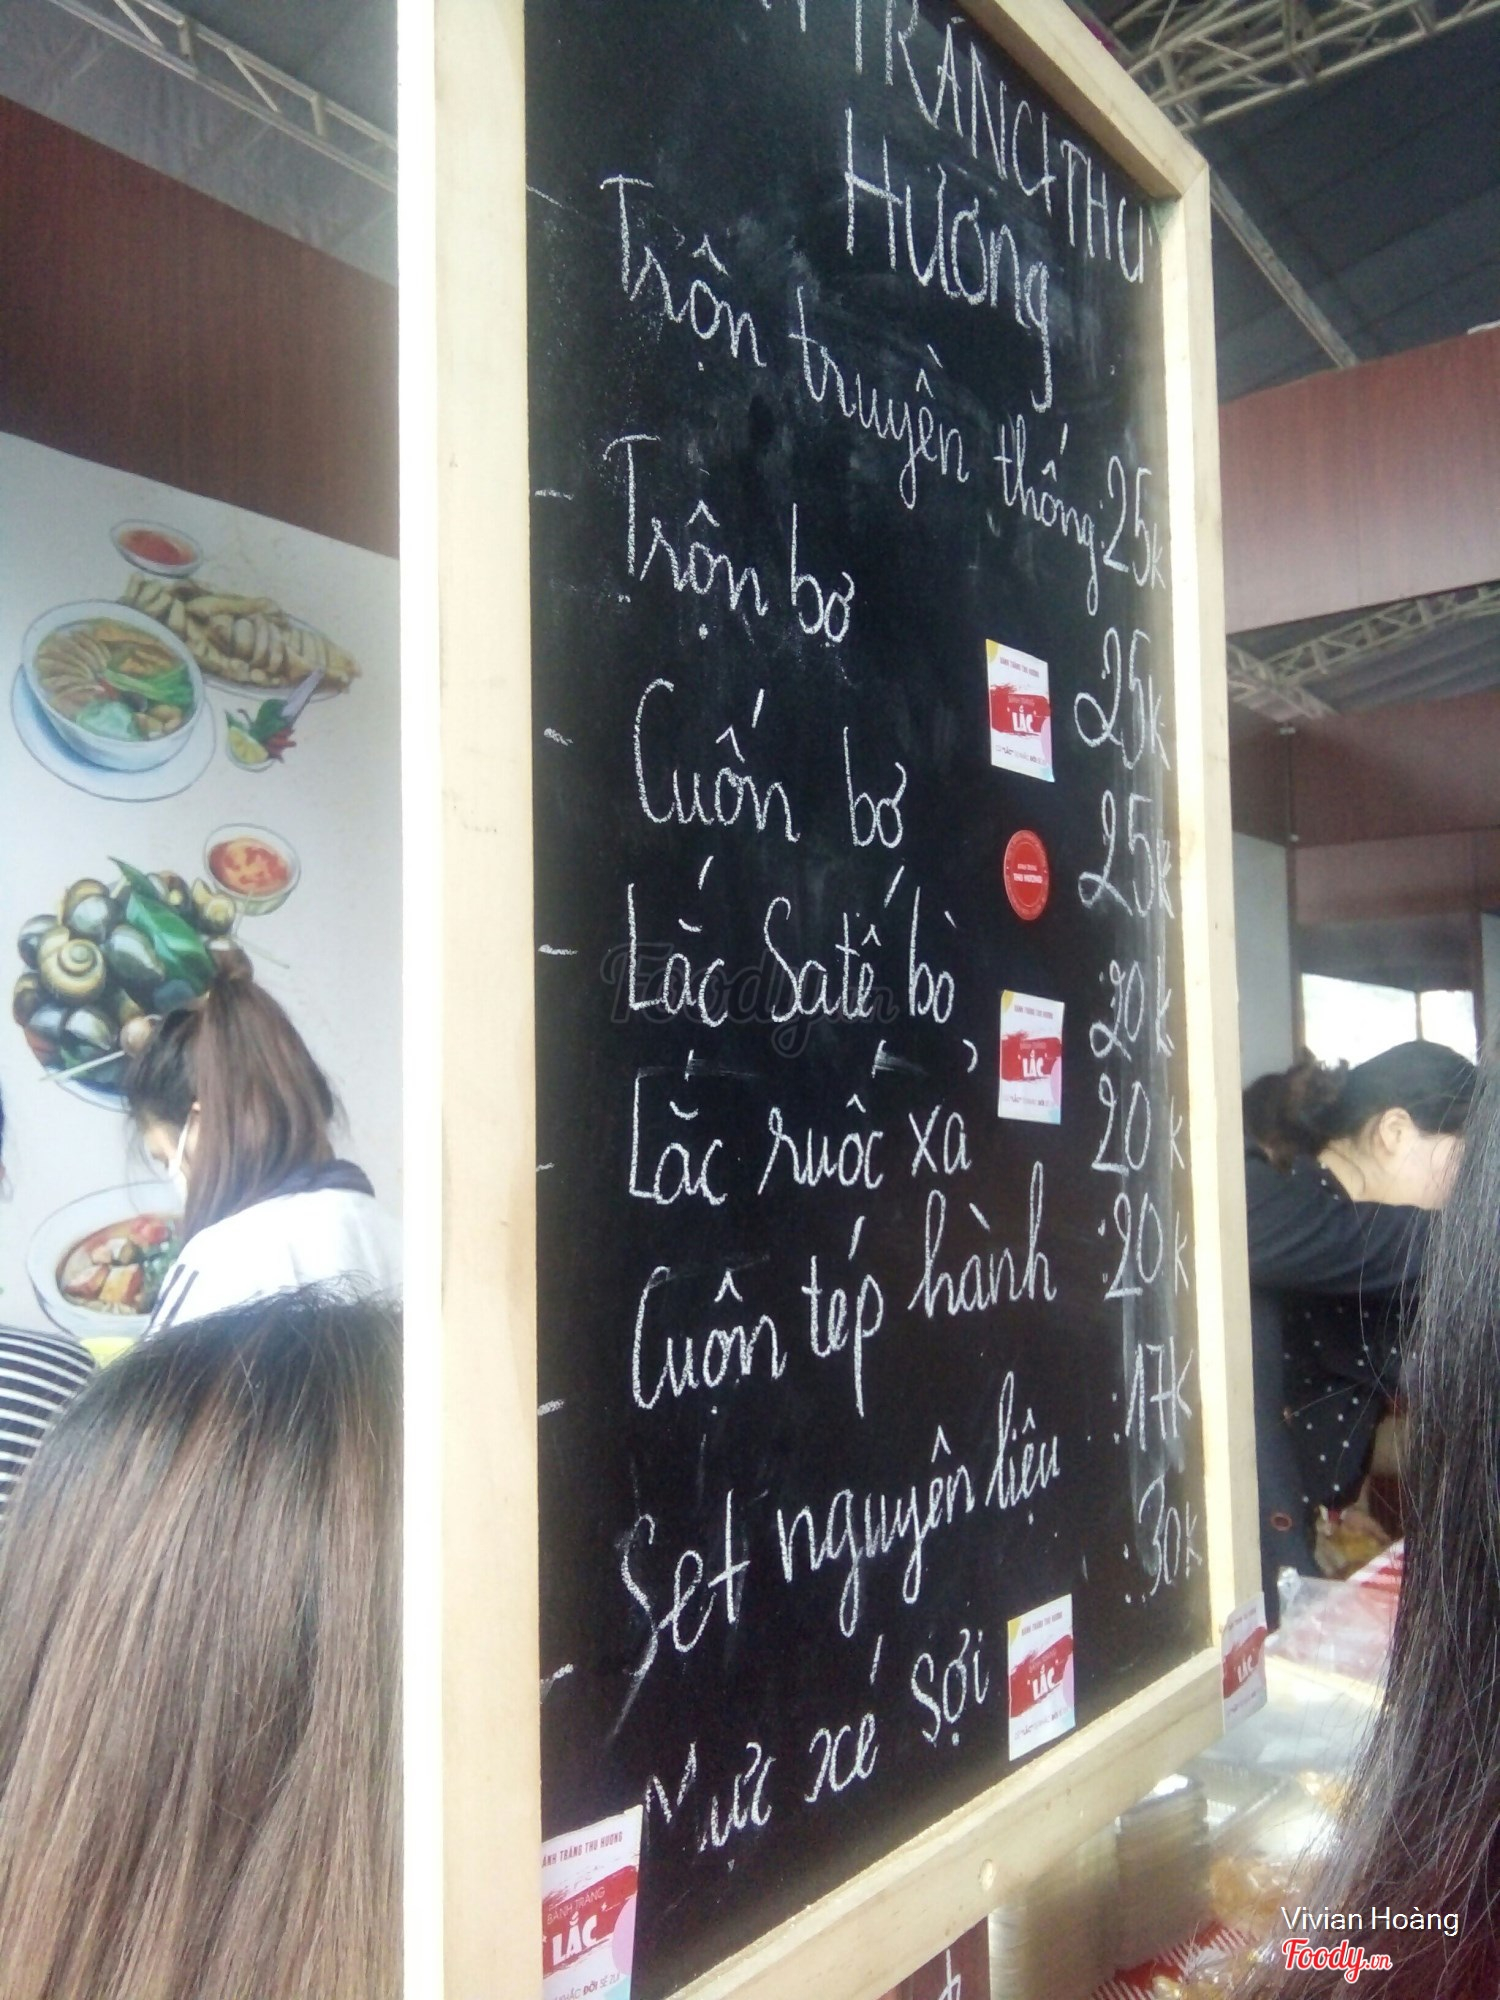 TRÁNG THU
Hương
- Trộn truyền thống: 25k
- Trộn bơ 25k
- Cuốn bơ 25k
- Lắc Satế bò 20k
- Lắc ruốc xả 20k
- Cuộn tép hành : 20k
Set nguyên liệu : 17k
- Mực xé sợi : 30k
BÁNH TRÁNG THU HƯƠNG
LẮC
THU HƯƠNG
LẮC
BÁNH TRÁNG THU HƯƠNG
LẮC
LẮC
ÁNH TRÁNG THU HƯƠNG
BÁNH TRÁNG
LẮC
Foody.vn
Vivian Hoàng
Foody.vn